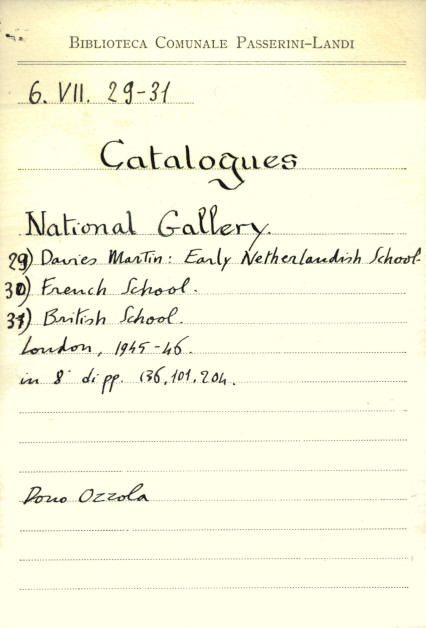 BIBLIOTECA COMUNALE PASSERINI-LANDI
6. VII. 29-31
Catalogues
National Gallery.
29) Davies Martin: Early Netherlandish School.
30) French School.
31) British School.
London, 1945-46.
in 8° di pp. 136, 101, 204.
Dono Ozzola